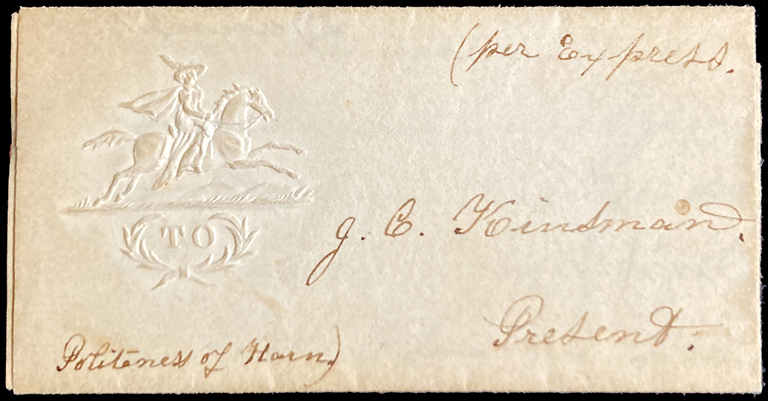 (per Express.
TO
J. C. Kinsman.
Present.
Politeness of Harn.)